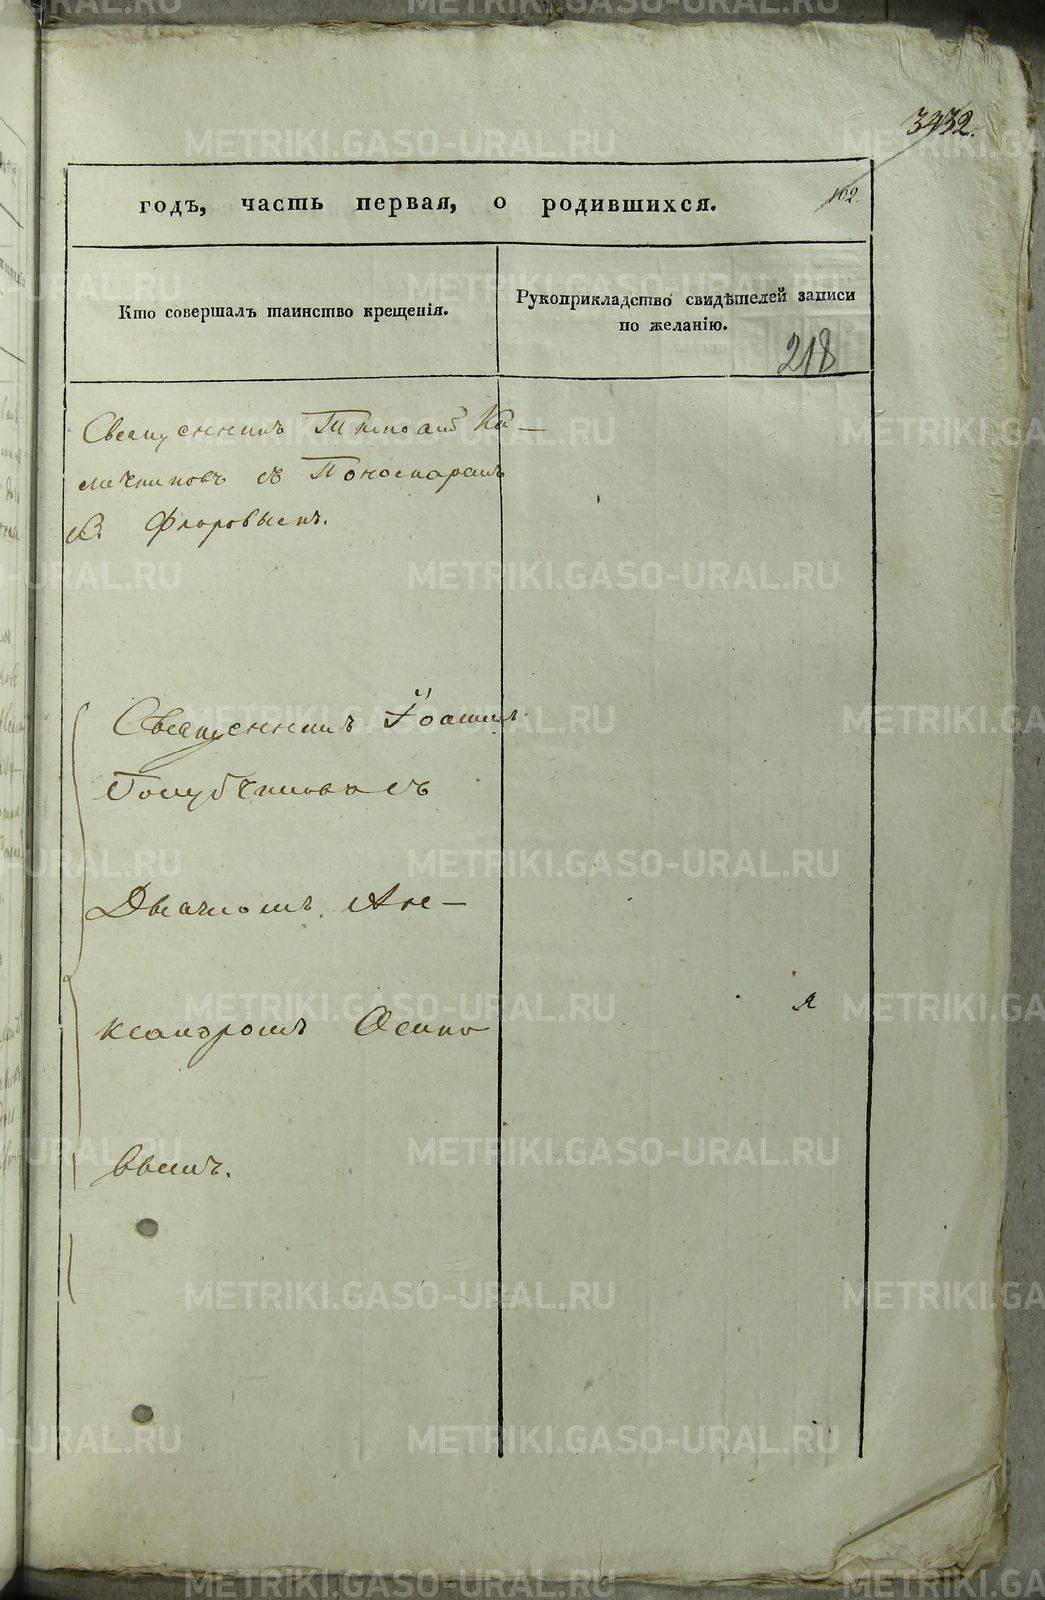 3432.
годъ, часть первая, о родившихся. 102.
Кто совершалъ таинство крещенія.
Рукоприкладство свидѣтелей записи
по желанію.
218
Священникъ Тимоѳей Ко-
съ Пономаремъ
Флоровымъ.
Священникъ Іоаннъ
Голубчиковъ съ
Дьячкомъ Але-
ксандромъ Осипо
вымъ.
я
METRIKI.GASO-URAL.RU